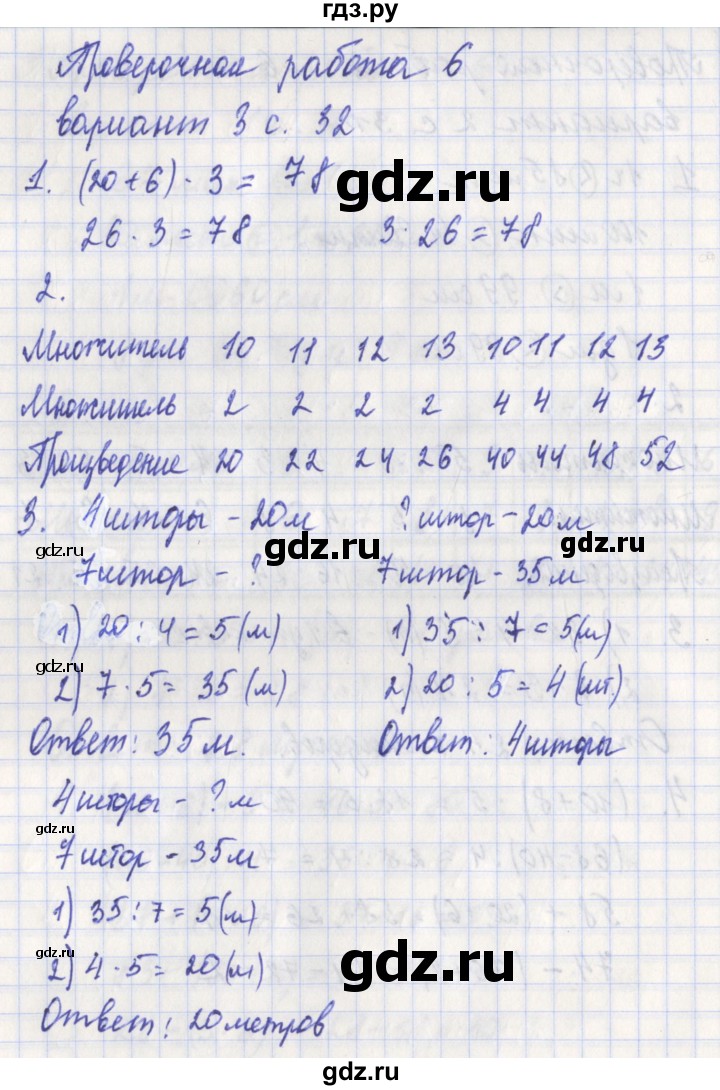 гдз.ру
Проверочная работа 6
вариант 3 с. 32
gdz.ru
1. (20+6) · 3 = 78
26 · 3 = 78 3 · 26 = 78
2.
gdz.ru
gdz.ru
Множитель 10 11 12 13 10 11 12 13
Множитель 2 2 2 2 4 4 4 4
Произведение 20 22 24 26 40 44 48 52
3. 4 шторы - 20м ? штор - 20м
gdz.ru
gdz.ru
gdz.ru
7 штор - ? 7 штор - 35м
1) 20 : 4 = 5 (м) 1) 35 : 7 = 5 (м)
gdz.ru
gdz.ru
2) 7 · 5 = 35 (м) 2) 20 : 5 = 4 (шт.)
Ответ: 35 м. Ответ: 4 шторы
gdz.ru
4 шторы - ? м
gdz.ru
gdz.ru
7 штор - 35м
1) 35 : 7 = 5 (м)
gdz.ru
gdz.ru
2) 4 · 5 = 20 (м)
Ответ: 20 метров
gdz.ru